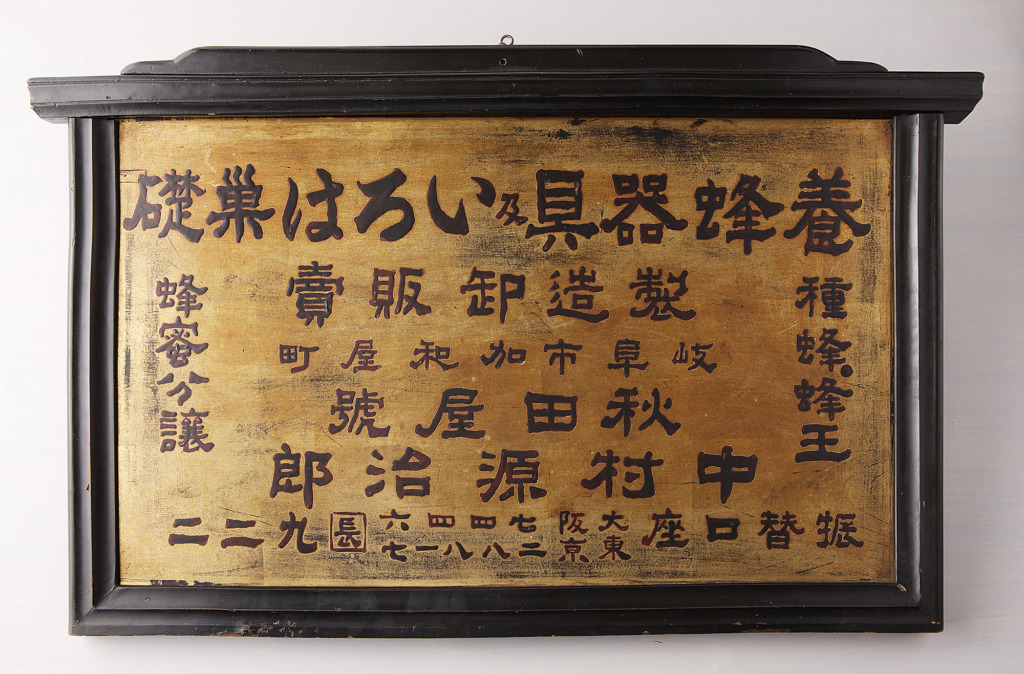 養蜂器具及いろは巢礎
種蜂、蜂王
製造卸販賣
岐阜市加和屋町
秋田屋號
中村源治郎
蜂蜜分讓
振替口座
大阪七四四六
東京二八八一七
長九二二